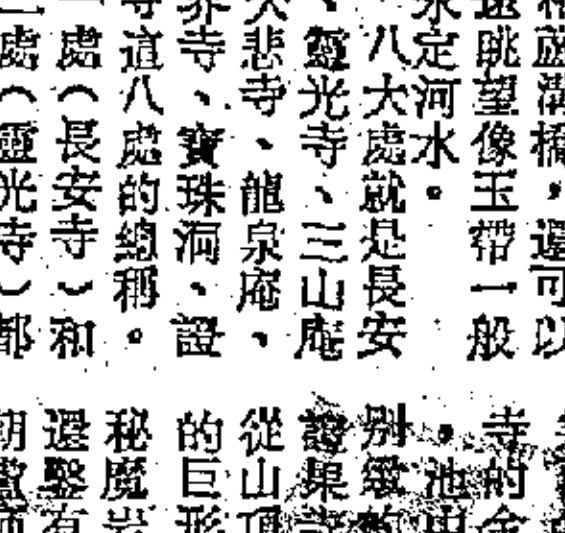 盧溝橋，還可以
遠眺望像玉帶一般
永定河水。
八大處就是長安
、靈光寺、三山庵
大悲寺、龍泉庵、
界寺、寶珠洞、證
寺這八處的總稱。
一處（長安寺）和
二處（靈光寺）都
寺的金
。池的中
别緻的
證果寺
從山頂
的巨形
秘魔岩
還鑿有
朝